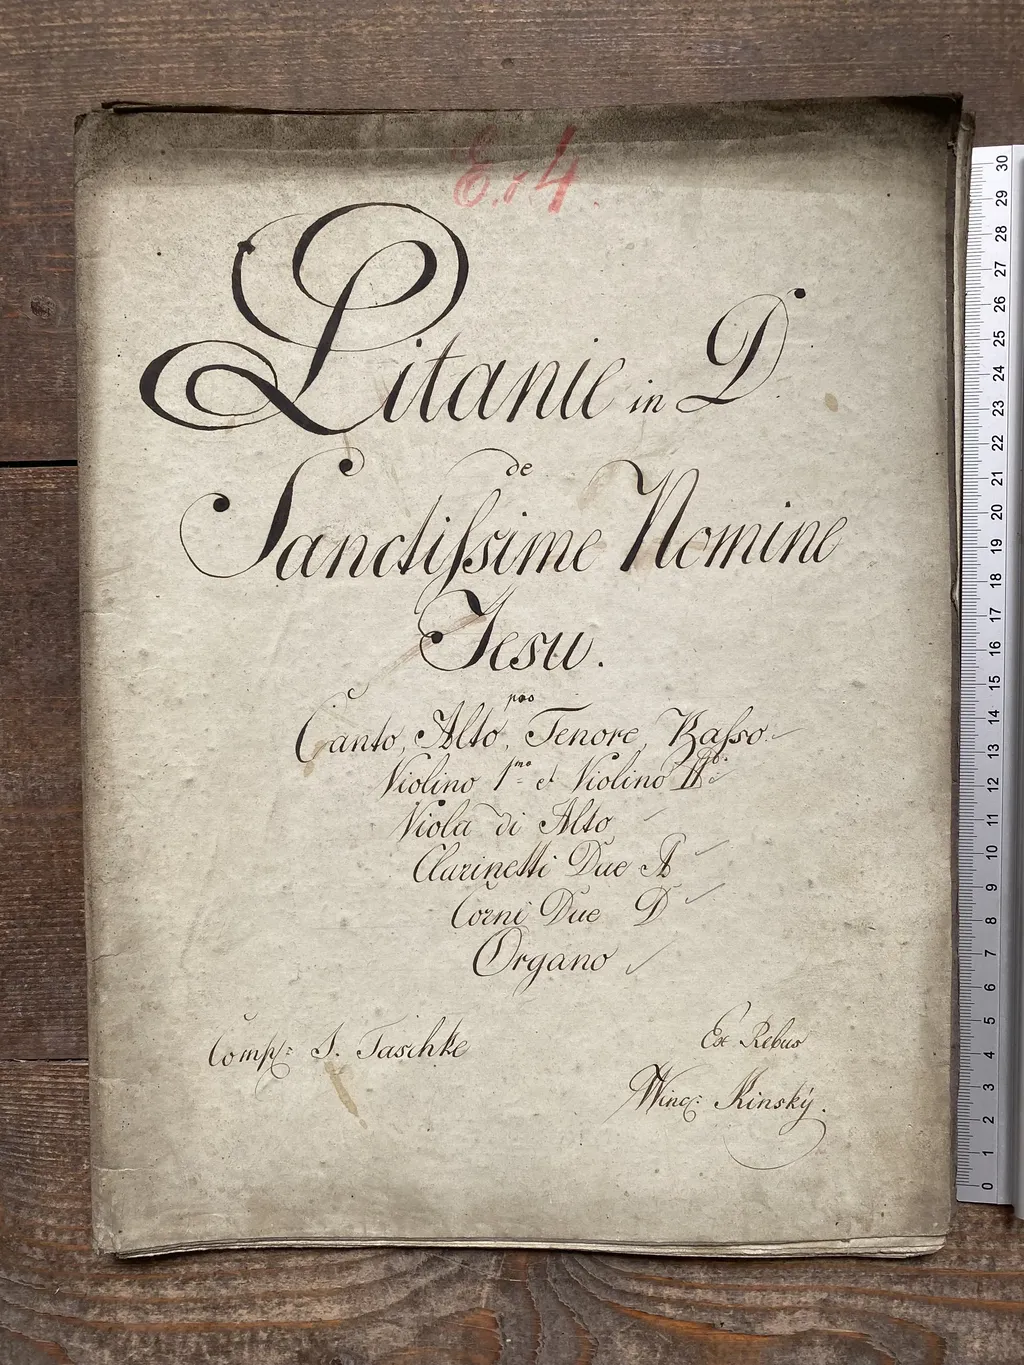 E. 4.
Litanie in D.
de
Sanctissime Nomine
Jesu.
pro
Canto, Alto, Tenore, Basso.
Violino 1mo et Violino IIdo
Viola di Alto
Clarinetti Due A
Corni Due D
Organo
Comp: J. Taschke
Ex Rebus
Winc: Kinský.
30
29
28
27
26
25
24
23
22
21
20
19
18
17
16
15
14
13
12
11
10
9
8
7
6
5
4
3
2
1
0